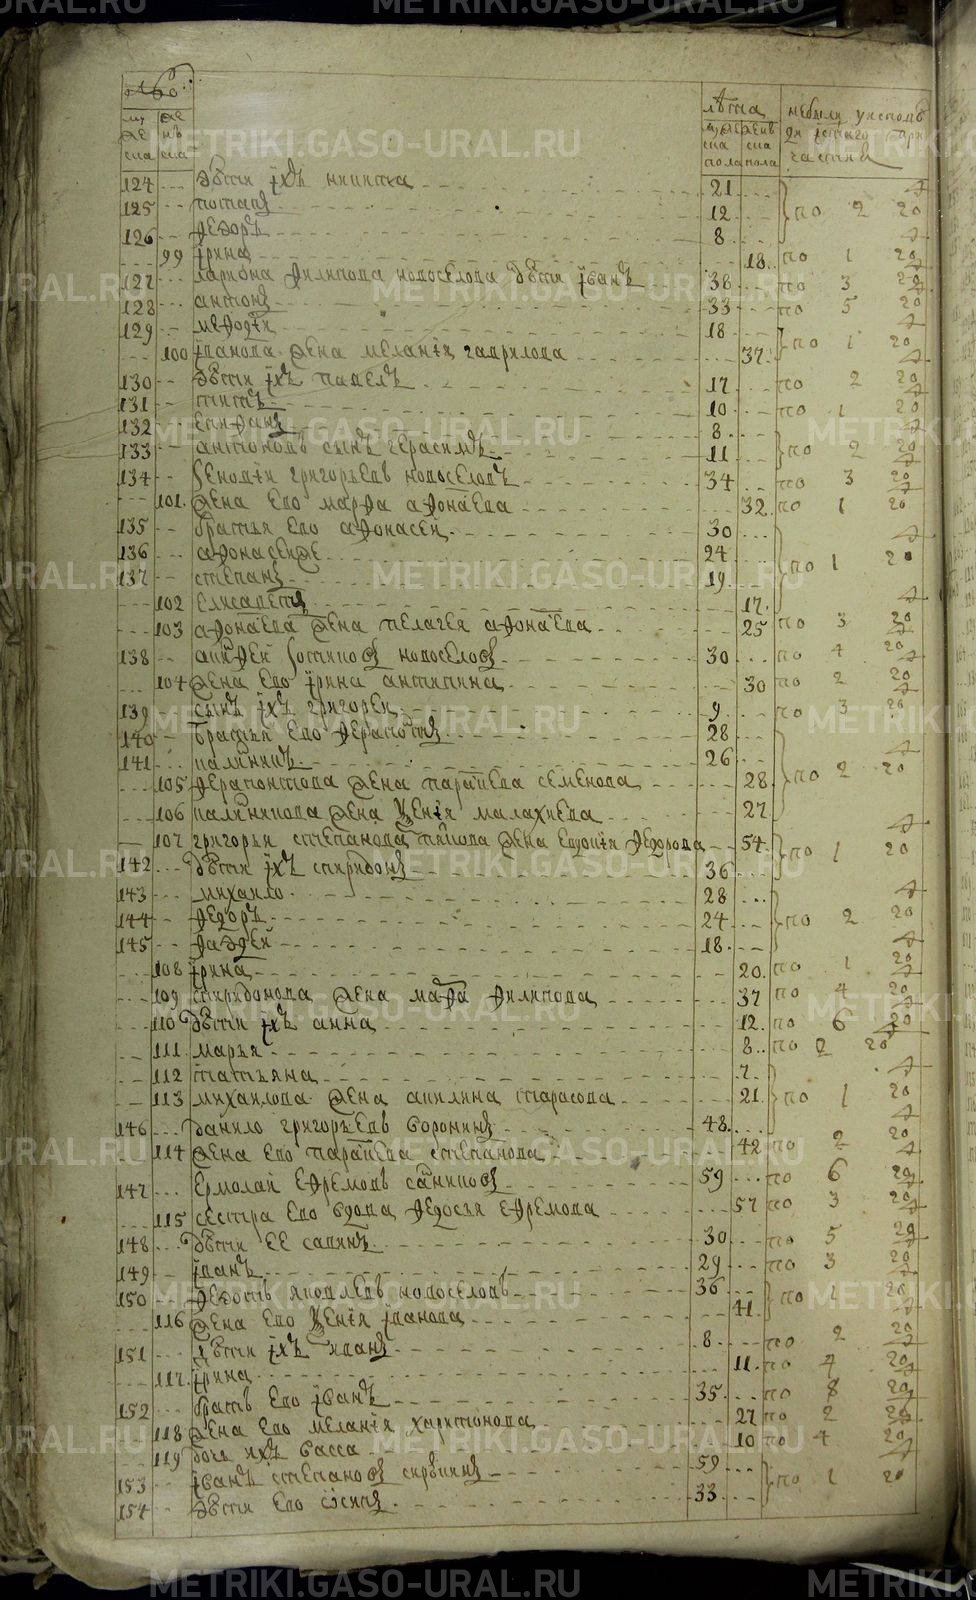 METRIKI.GASO-URAL.RU
мужеска женска лѣта мужеска пола женска пола небыли уисповѣди
124 дѣти їхъ никита 21
125 потапъ 12 по 2 20
126 федоръ 8
99 їрина 18 по 1 20
127 лариона филипова новоселова дѣти їванъ 38 по 3 20
128 антонъ 33 по 5 20
129 мефодїи 18
100 їванова жена меланїя гаврилова 37 по 1 20
130 дѣти їхъ павелъ 17 по 2 20
131 титъ 10 по 1 20
132 епифанъ 8
133 антоновъ сынъ герасимъ 11 по 2 20
134 зеновїи григорьевъ новоселовъ 34 по 3 20
101 жена ево марфа афонаева 32 по 1 20
135 братья ево афонасей 30
136 афонасейже 24
137 степанъ 19 по 1 20
102 елисаветъ 17
103 афонаева жена пелагея афонаева 25 по 3 20
138 новоселовъ 30 по 4 20
104 жена ево їрина антипина 30 по 2 20
139 сынъ їхъ григореи 9 по 3 20
140 братья ево ферапонтъ 28
141 калинникъ 26
105 ферапонтова жена параскева семенова 28 по 2 20
106 калиникова жена ксенїя малахиева 27
107 григорья степанова жена евдокїя федорова 54
142 дѣти їхъ спиридонъ 36 по 1 20
143 михаило 28
144 федоръ 24 по 2 20
145 фадѣй 18
108 їрина 20 по 1 20
109 спиридонова жена марфа филипова 37 по 4 20
110 дѣти їхъ анна 12 по 6 20
111 марья 8 по 2 20
112 татьяна 7
113 михаилова жена акилина тарасова 21 по 1 20
146 данило григорьевъ воронинъ 48
114 жена ево параскева степанова 42 по 2 20
147 ермолай ефремовъ санниковъ 59 по 6 20
115 сестра ево вдова федосья ефремова 57 по 3 20
148 дѣти ее савинъ 30 по 5 20
149 їванъ 29 по 3 20
150 федотъ яковлевъ новоселовъ 36
116 жена ево ксенїя їванова 41 по 1 20
151 дѣти їхъ иванъ 8 по 2 20
117 їрина 11 по 4 20
152 братъ ево їванъ 35 по 8 20
118 жена ево меланїя харитонова 27 по 2 20
119 дочь ихъ васса 10 по 4 20
153 їванъ степановъ 59
154 дѣти ево їосипъ 33 по 1 20
METRIKI.GASO-URAL.RU